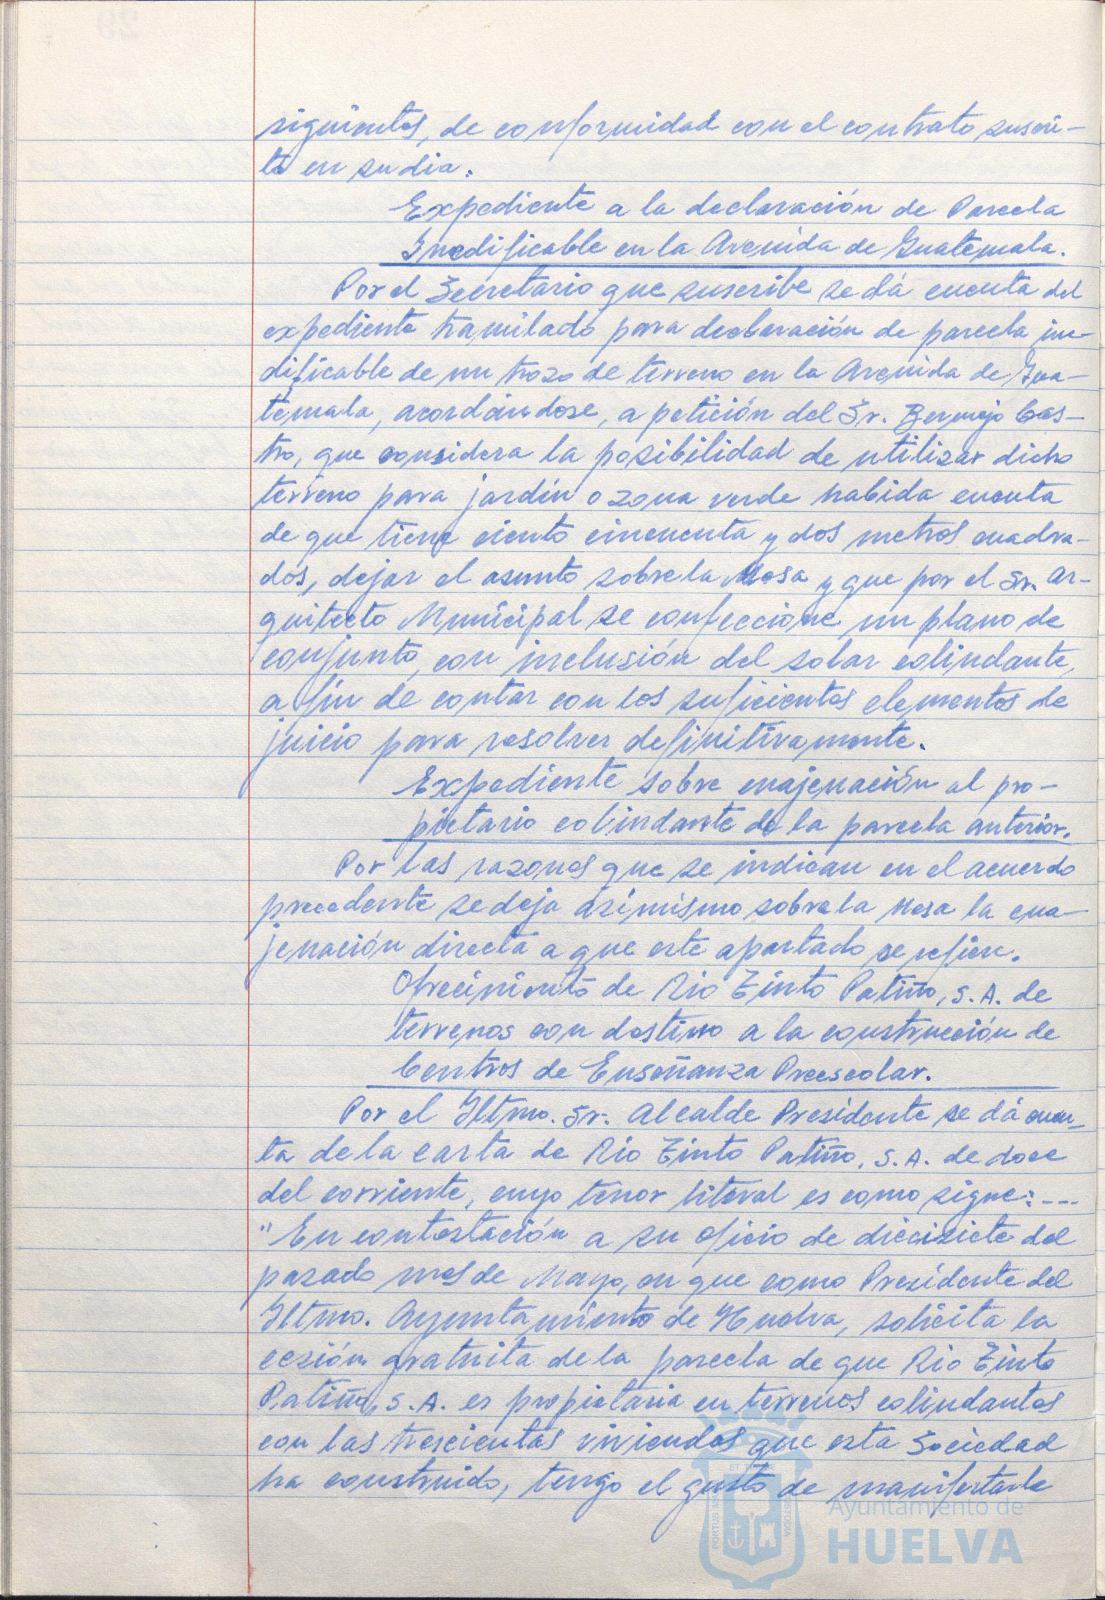 siguientes, de conformidad con el contrato suscri-
to en su dia.
Expediente a la declaración de Parcela
Inedificable en la Avenida de Guatemala.
Por el Secretario que suscribe se dá cuenta del
expediente tramitado para declaración de parcela ine-
dificable de un trozo de terreno en la Avenida de Gua-
temala, acordándose, a petición del Sr. Bermejo Cas-
tro, que considera la posibilidad de utilizar dicho
terreno para jardín o zona verde habida cuenta
de que tiene ciento cincuenta y dos metros cuadra-
dos, dejar el asunto sobre la Mesa y que por el Sr. Ar-
quitecto Municipal se confeccione un plano de
conjunto, con inclusión del solar colindante,
a fin de contar con los suficientes elementos de
juicio para resolver definitivamente.
Expediente sobre enajenación al pro-
pietario colindante de la parcela anterior.
Por las razones que se indican en el acuerdo
precedente se deja asimismo sobre la Mesa la ena-
jenación directa a que este apartado se refiere.
Ofrecimiento de Rio Tinto Patiño, S.A. de
terrenos con destino a la construcción de
Centros de Enseñanza Preescolar.
Por el Iltmo. Sr. Alcalde Presidente se dá cuen-
ta de la carta de Rio Tinto Patiño, S.A. de doce
del corriente, cuyo tenor literal es como sigue: ---
"En contestación a su oficio de diecisiete del
pasado mes de Mayo, en que como Presidente del
Iltmo. Ayuntamiento de Huelva, solicita la
cesión gratuita de la parcela de que Rio Tinto
Patiño, S.A. es propietaria en terrenos colindantes
con las trescientas viviendas que esta Sociedad
ha construido, tengo el gusto de manifestarle
Ayuntamiento de
HUELVA